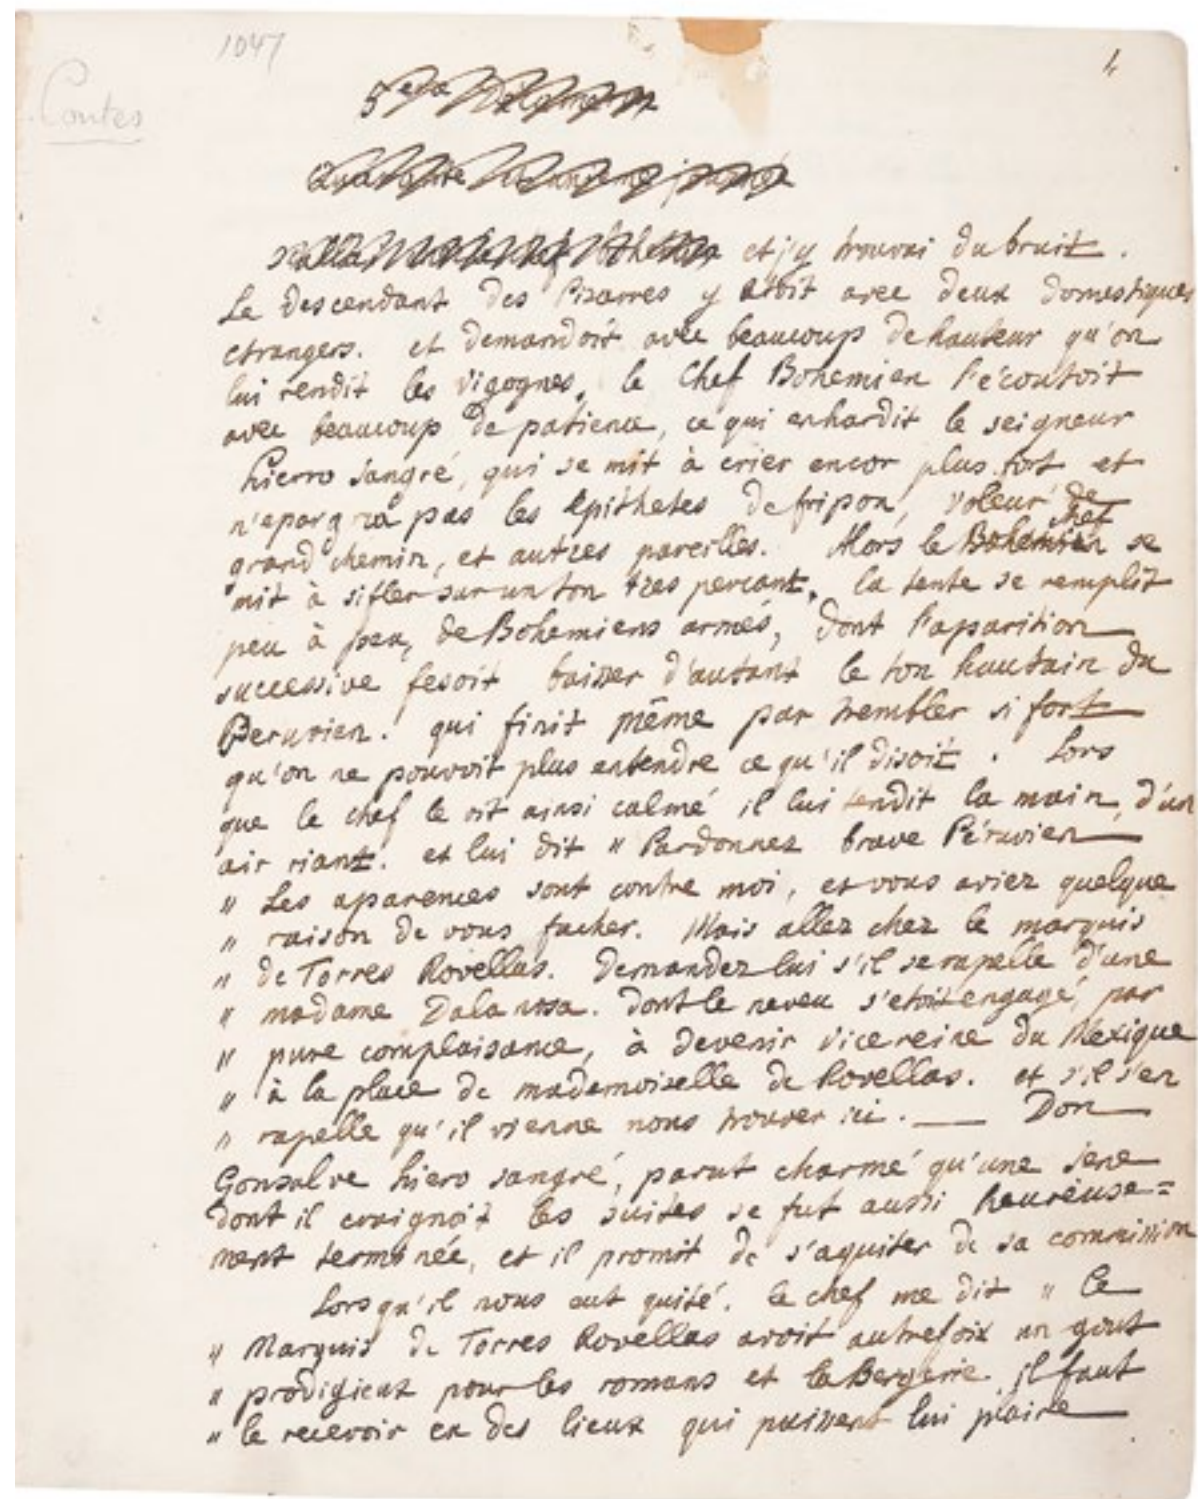 1047
4
Contes
et j'y trouvai du bruit.
Le descendant des Pizarres y etoit avec deux domestiques
etrangers. et demandoit avec beaucoup de hauteur qu'on
lui rendit les vigognes. le Chef Bohemien l'écoutoit
avec beaucoup de patience, ce qui enhardit le seigneur
hierro sangré, qui se mit à crier encor plus fort et
n'epargna pas les Epithetes de fripon, voleur de
grand chemin, et autres pareilles. Alors le chef Bohemien se
mit à sifler sur un ton tres percant. la tente se remplit
peu à peu, de Bohemiens armés, dont l'aparition
successive fesoit baisser d'autant le ton hautain du
Peruvien. qui finit même par trembler si fort
qu'on ne pouvoit plus entendre ce qu'il disoit. Lors
que le chef le vit ainsi calmé il lui tendit la main, d'un
air riant. et lui dit " Pardonnez brave Péruvien
" Les aparences sont contre moi, et vous aviez quelque
" raison de vous facher. Mais allez chez le marquis
" de Torres Rovellas. Demandez lui s'il se rapelle d'une
" madame Dalanosa. dont le neveu s'etoit engagé, par
" pure complaisance, à devenir vicereine du Mexique
" à la place de mademoiselle de Rovellas. et s'il s'en
" rapelle qu'il vienne nous trouver ici. — Don
Gonsalve hiero sangré, parut charmé qu'une sene
dont il craignoit les suites se fut aussi heureuse=
ment terminée, et il promit de s'aquiter de sa commission
Lorsqu'il nous eut quité. le chef me dit " Le
" Marquis de Torres Rovellas avoit autrefoix un gout
" prodigieux pour les romans et la Bergerie. il faut
" le recevoir en des lieux qui puissent lui plaire